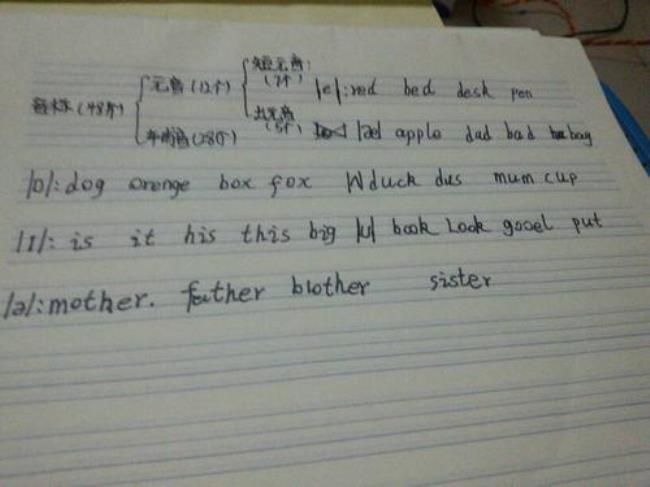 短元音:
元音(12个) (7个) /e/:red bed desk pen
音标(48个) 长元音
辅音(28个) (5个) /æ/ apple dad bad bag
/ɒ/: dog orenge box fox /ʌ/ duck dus mum cup
/ɪ/: is it his this big /ʊ/ book Look gooel put
/ə/:mother. father brother sister